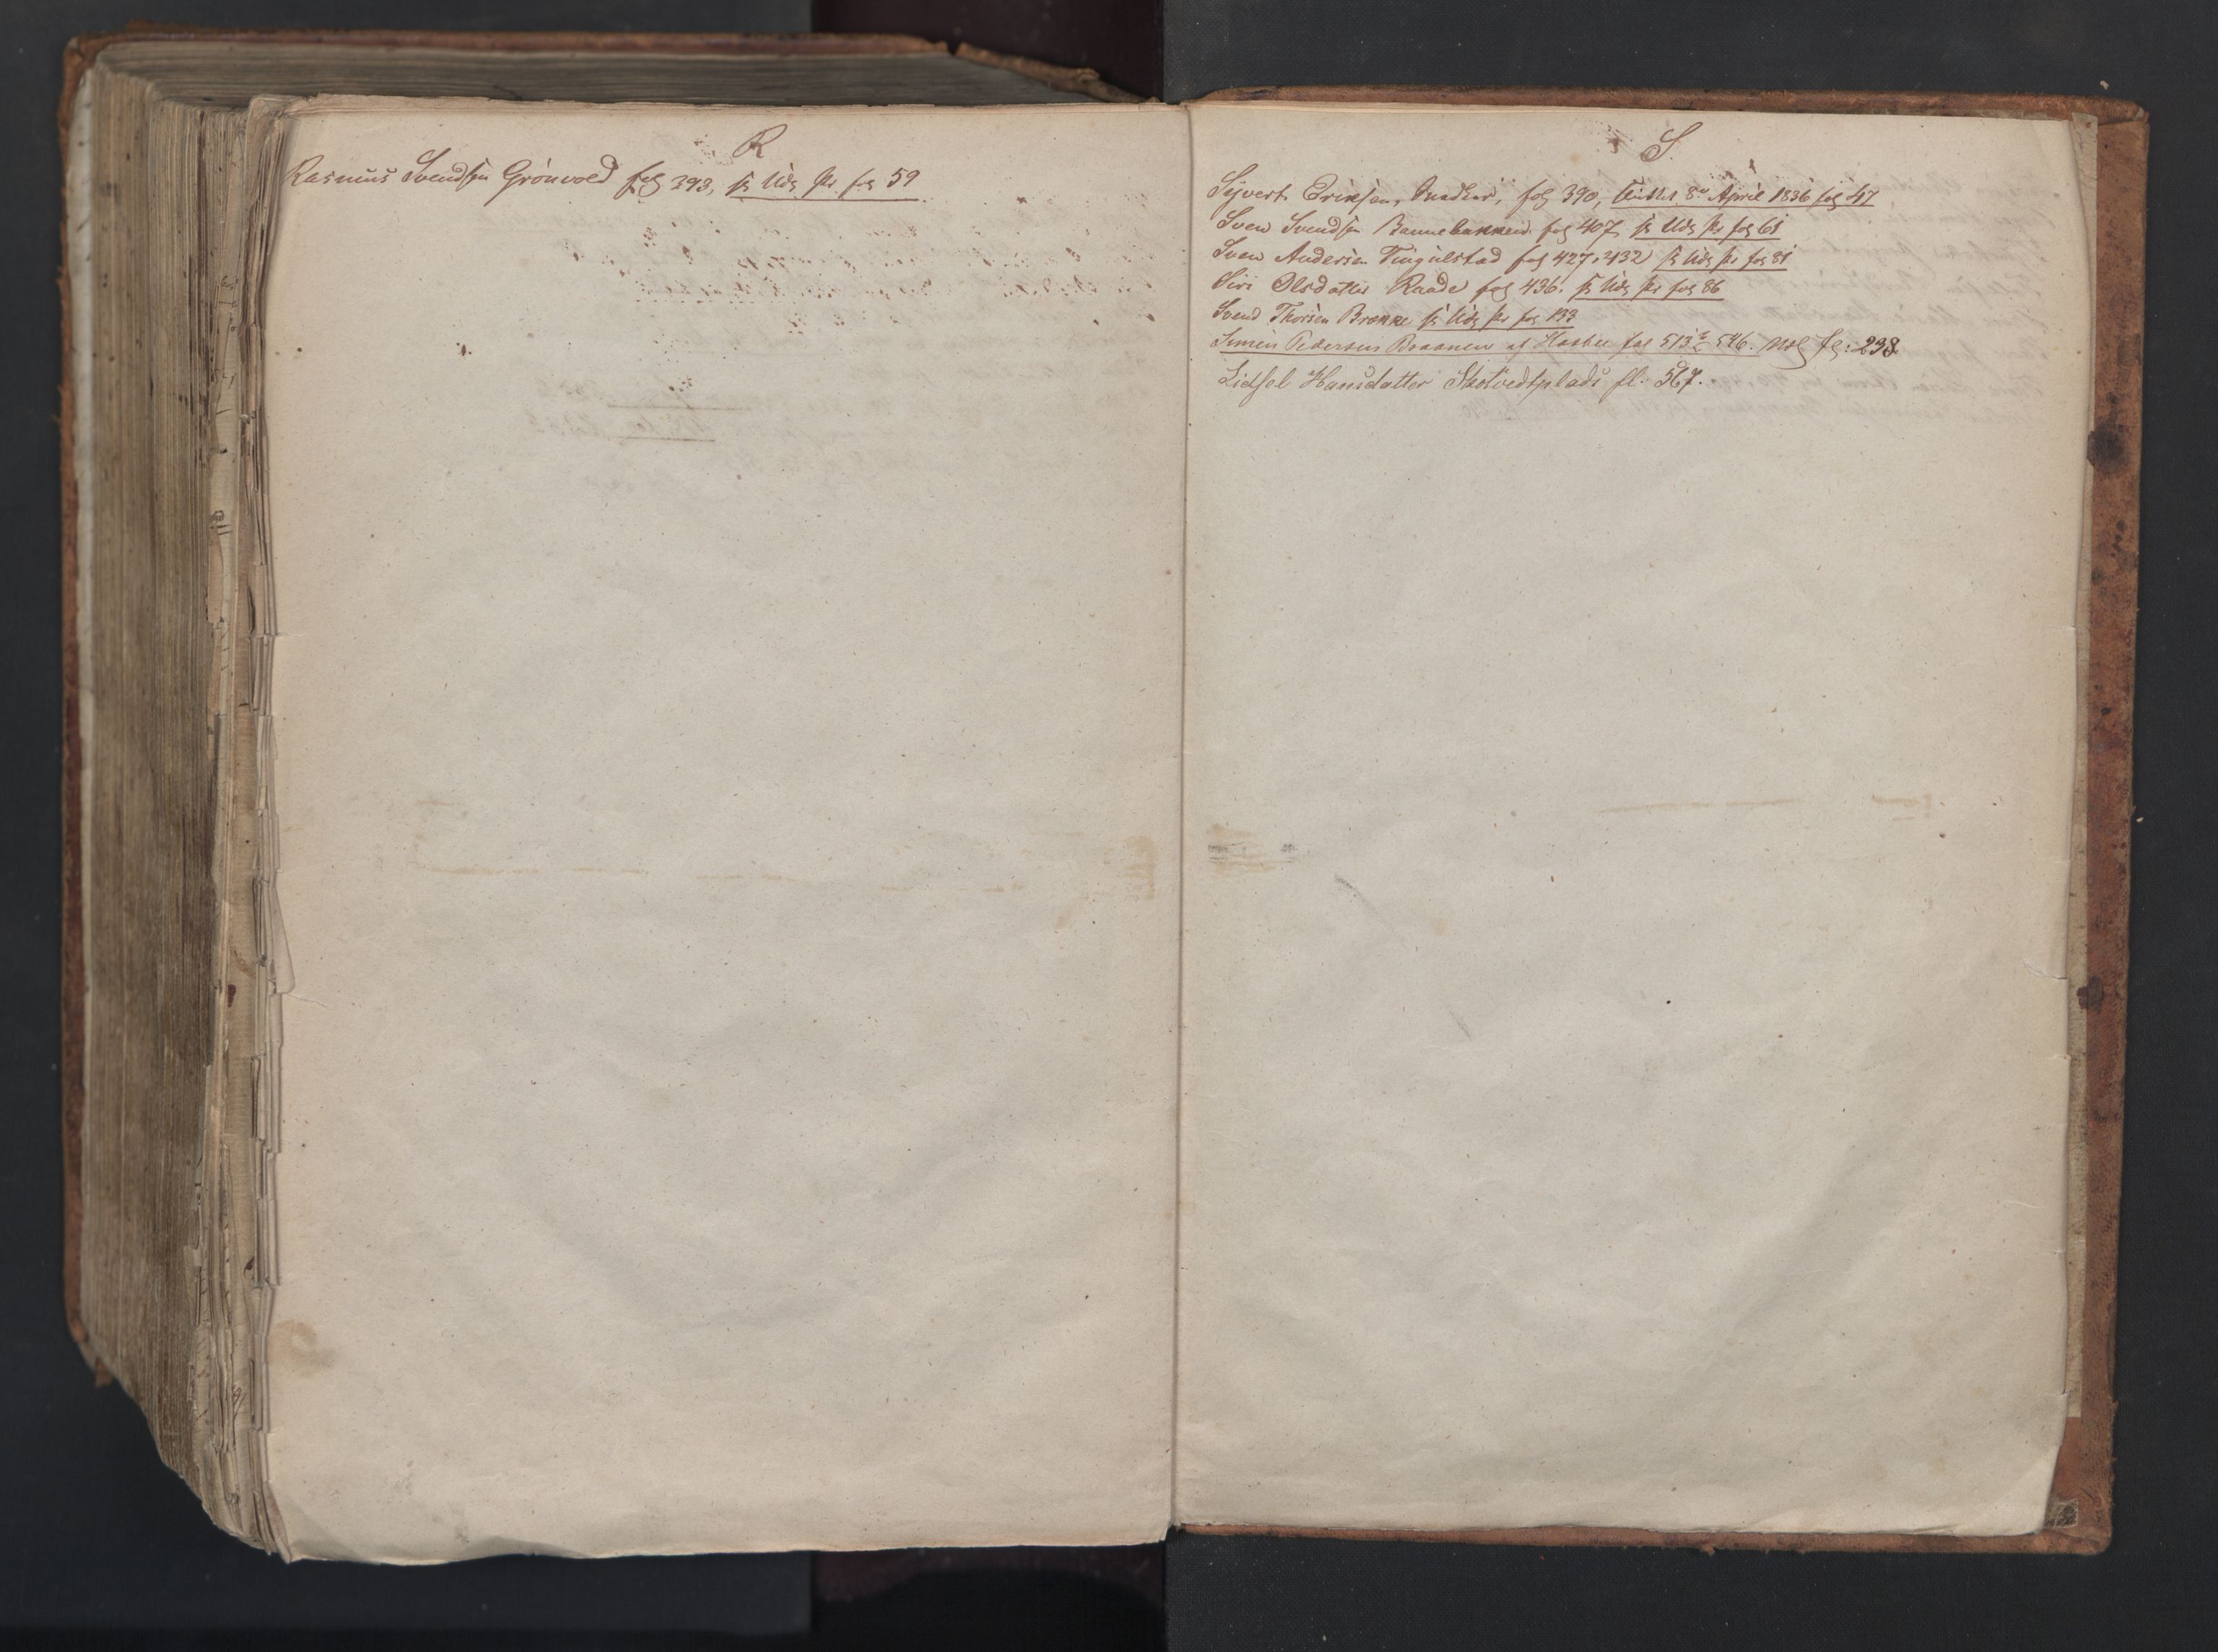 R
Rasmus Svendsen Grönvold fol 393, se Uds Pr fol 59
S.
Syvert Eriksen, fol 390, 8de April 1836 fol 47
Sven Svendsen fol 407, se Uds Pr fol 61
Sven Andersen Tingulstad fol 427, 432 se Uds Pr fol 81
Siri Olsdatter Raade fol 436. se Uds Pr fol 86
Svend Thorsen Brække se Uds Pr fol 133
Simen Pedersen Braanen af fol 513 546. fg: 238.
Sidsel Hansdatter Skotvedtplads fl. 567.